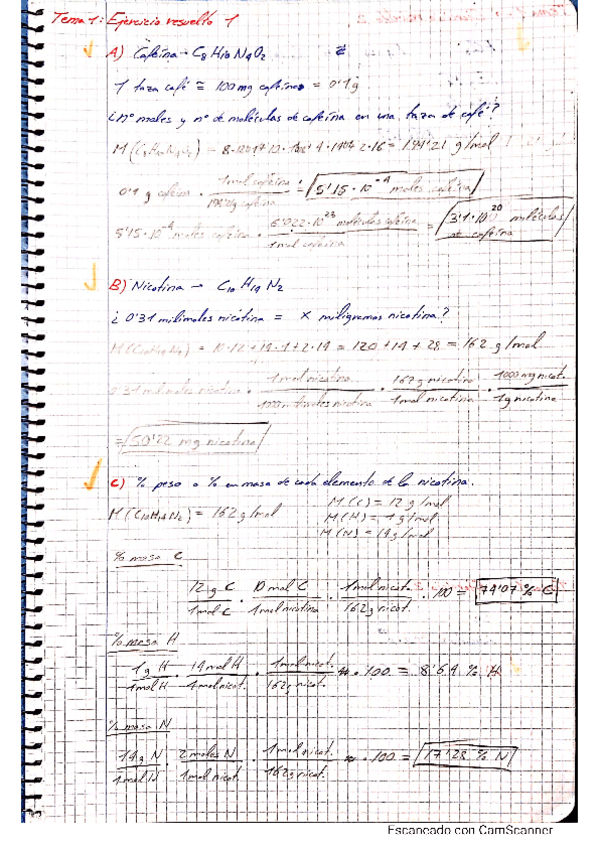 Tema 1: Ejercicio resuelto 1
A) Cafeína → C8 H10 N4 O2
1 taza café ≅ 100 mg cafeína = 0'1 g
¿nº moles y nº de moléculas de cafeína en una taza de café?
M(C8H10N4O2) = 194'21 g/mol
0'1 g cafeína · 1 mol cafeína / 194'21 g cafeína = 5'15 · 10⁻⁴ moles cafeína
5'15 · 10⁻⁴ moles cafeína · 6'022 · 10²³ moléculas cafeína / 1 mol cafeína = 3'1 · 10²⁰ moléculas de cafeína
B) Nicotina → C10 H14 N2
¿ 0'31 milimoles nicotina = x miligramos nicotina?
M(C10H14N2) = 10·12 + 14·1 + 2·14 = 120 + 14 + 28 = 162 g/mol
0'31 milimoles nicotina · 1 mol nicotina / 1000 milimoles nicotina · 162 g nicotina / 1 mol nicotina · 1000 mg nicot. / 1 g nicotina
= 50'22 mg nicotina
C) % peso o % en masa de cada elemento de la nicotina.
M(C10H14N2) = 162 g/mol
M(C) = 12 g/mol
M(H) = 1 g/mol
M(N) = 14 g/mol
% masa C
12 g C / 1 mol C · 10 mol C / 1 mol nicotina · 1 mol nicot. / 162 g nicot. · 100 = 74'07 % C
% masa H
1 g H / 1 mol H · 14 mol H / 1 mol nicot. · 1 mol nicot. / 162 g nicot. · 100 = 8'64 % H
% masa N
14 g N / 1 mol N · 2 moles N / 1 mol nicot. · 1 mol nicot. / 162 g nicot. · 100 = 17'28 % N
Escaneado con CamScanner